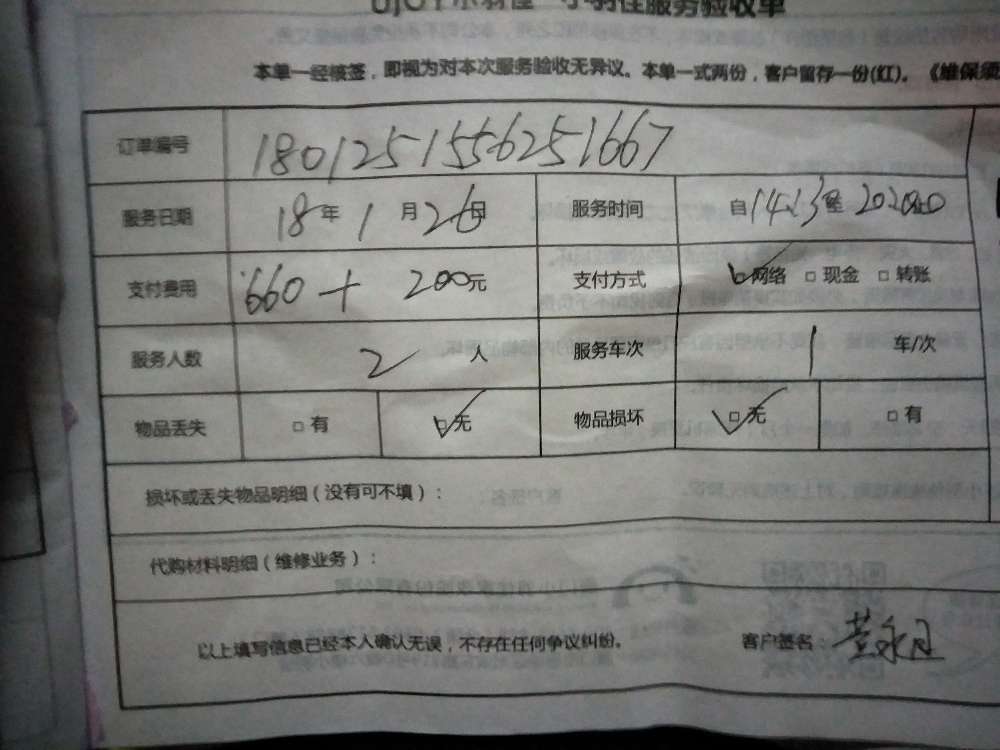 小羽佳服务验收单
本单一经核签，即视为对本次服务验收无异议。本单一式两份，客户留存一份(红)。《维保须
订单编号 1801251556251667
服务日期 18年1月26日 服务时间 自14:13至
支付费用 660+200元 支付方式 网络 现金 转账
服务人数 2人 服务车次 1车/次
物品丢失 有 无 物品损坏 无 有
损坏或丢失物品明细（没有可不填）：
代购材料明细（维修业务）：
以上填写信息已经本人确认无误，不存在任何争议纠纷。 客户签名：